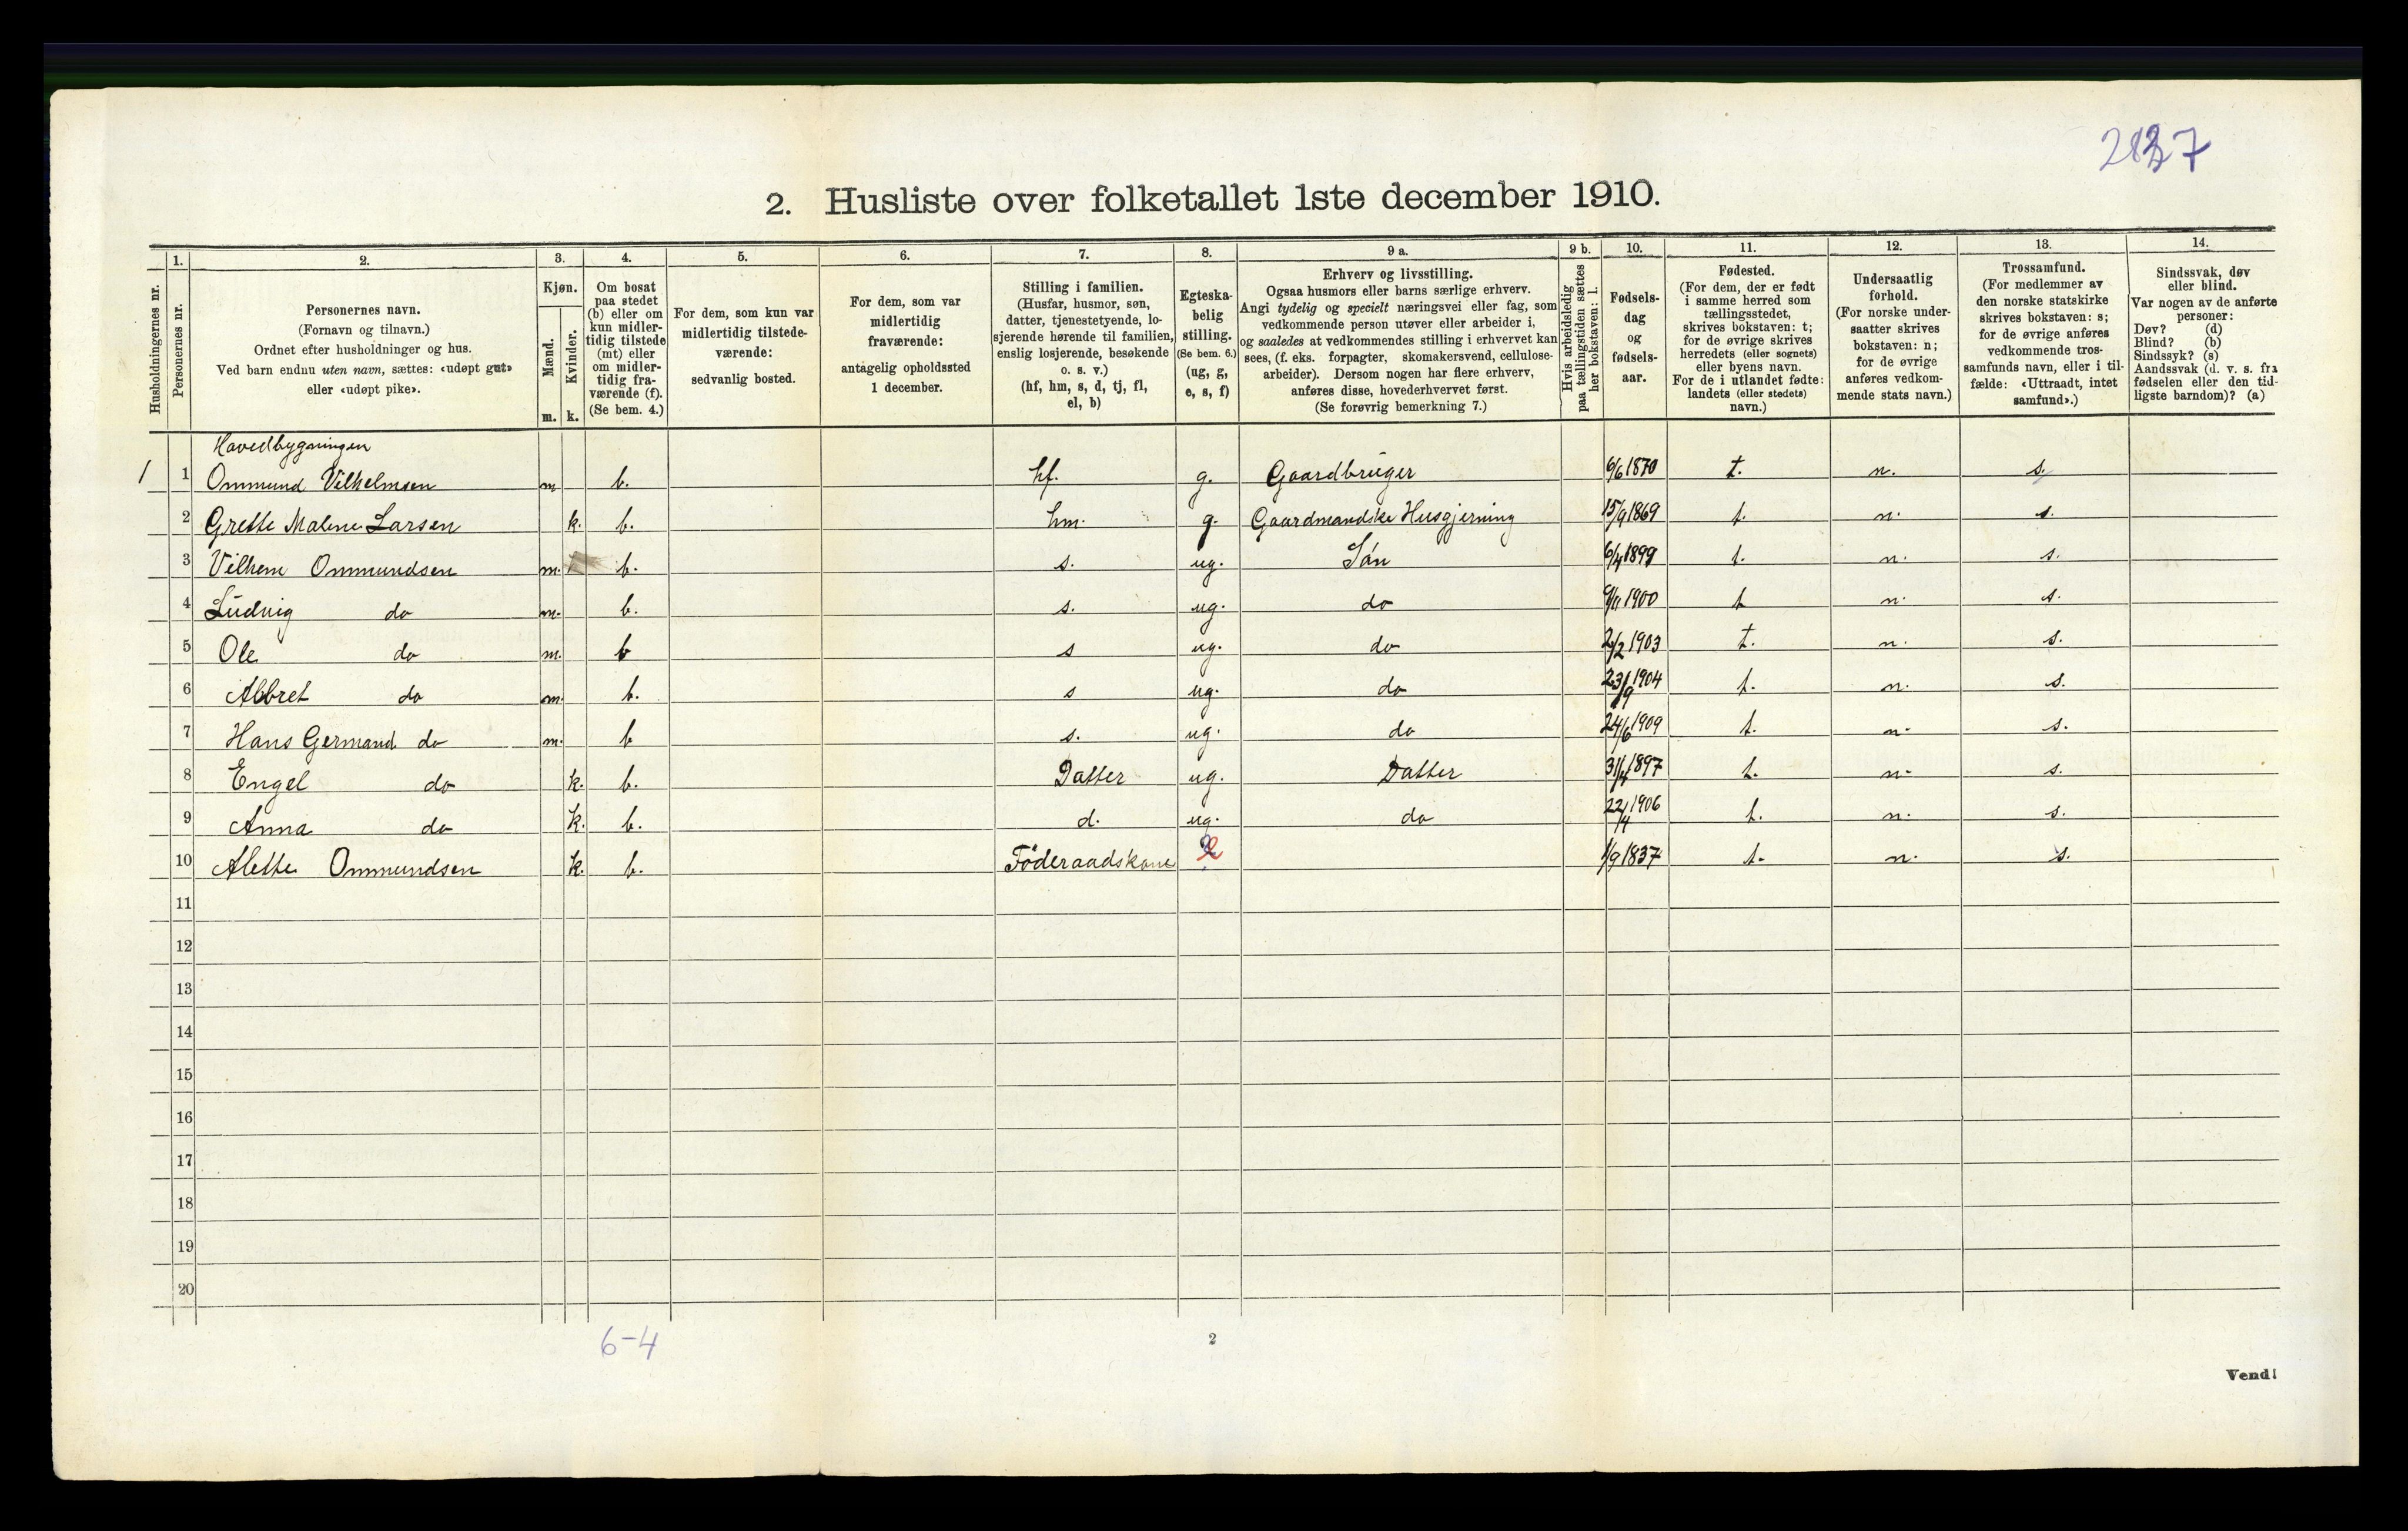 2837
2. Husliste over folketallet 1ste december 1910.
Husholdningernes nr.
1.
Personernes nr.
2.
Personernes navn.
(Fornavn og tilnavn.)
Ordnet efter husholdninger og hus.
Ved barn endnu uten navn, sættes: «udøpt gut»
eller «udøpt pike».
3.
Kjøn.
Mænd.
m.
Kvinder.
k.
4.
Om bosat
paa stedet
(b) eller om
kun midler-
tidig tilstede
(mt) eller
om midler-
tidig fra-
værende (f).
(Se bem. 4.)
5.
For dem, som kun var
midlertidig tilstede-
værende:
sedvanlig bosted.
6.
For dem, som var
midlertidig
fraværende:
antagelig opholdssted
1 december.
7.
Stilling i familien.
(Husfar, husmor, søn,
datter, tjenestetyende, lo-
sjerende hørende til familien,
enslig losjerende, besøkende
o. s. v.)
(hf, hm, s, d, tj, fl,
el, b)
8.
Egteska-
belig
stilling.
(Se bem. 6.)
(ug, g,
e, s, f)
9 a.
Erhverv og livsstilling.
Ogsaa husmors eller barns særlige erhverv.
Angi tydelig og specielt næringsvei eller fag, som
vedkommende person utøver eller arbeider i,
og saaledes at vedkommendes stilling i erhvervet kan
sees, (f. eks. forpagter, skomakersvend, cellulose-
arbeider). Dersom nogen har flere erhverv,
anføres disse, hovederhvervet først.
(Se forøvrig bemerkning 7.)
9 b.
Hvis arbeidsledig
paa tællingstiden sættes
her bokstaven: l.
10.
Fødsels-
dag
og
fødsels-
aar.
11.
Fødested.
(For dem, der er født
i samme herred som
tællingsstedet,
skrives bokstaven: t;
for de øvrige skrives
herredets (eller sognets)
eller byens navn.
For de i utlandet fødte:
landets (eller stedets)
navn.)
12.
Undersaatlig
forhold.
(For norske under-
saatter skrives
bokstaven: n;
for de øvrige
anføres vedkom-
mende stats navn.)
13.
Trossamfund.
(For medlemmer av
den norske statskirke
skrives bokstaven: s;
for de øvrige anføres
vedkommende tros-
samfunds navn, eller i til-
fælde: «Uttraadt, intet
samfund».)
14.
Sindssvak, døv
eller blind.
Var nogen av de anførte
personer:
Døv? (d)
Blind? (b)
Sindssyk? (s)
Aandssvak (d. v. s. fra
fødselen eller den tid-
ligste barndom)? (a)
Hovedbygningen
1 1 Ommund Vilhelmsen m b. hf. g. Gaardbruger 6/6 1870 t. n. s.
2 Grethe Malene Larsen k. b. hm. g. Gaardmandske Husgjerning 15/9 1869 t. n. s.
3 Vilhem Ommundsen m. b. s. ug. Søn 6/4 1899 t. n. s.
4 Ludvig do m. b. s. ug. do 9/11 1900 t n. s.
5 Ole do m. b s ug. do 2/2 1903 t. n. s.
6 Albret do m. b. s ug. do 23/9 1904 t. n. s.
7 Hans Germand do m. b s. ug. do 24/6 1909 t. n. s.
8 Engel do k. b. Datter ug. Datter 31/4 1897 t. n. s.
9 Anna do k. b. d. ug. do 22/4 1906 t. n. s.
10 Alette Ommundsen k. b. Føderaadskone 1/9 1837 t. n. s.
11
12
13
14
15
16
17
18
19
20
6-4
2
Vend!